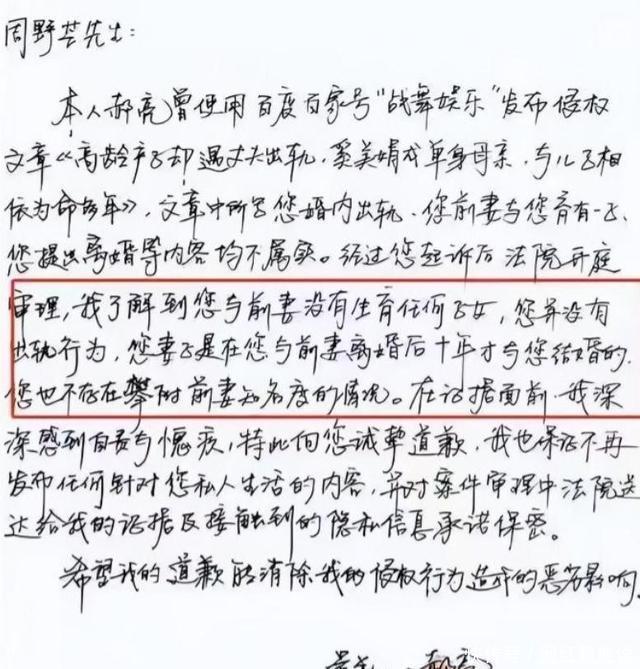 周野芒先生:
本人郝亮曾使用百度百家号"战舞娱乐"发布侵权
文章《高龄产子却遇丈夫出轨,奚美娟成单身母亲,与儿子相
依为命多年》,文章中所写您婚内出轨、您前妻与您育有一子、
您提出离婚等内容均不属实。经过您起诉后法院开庭
审理,我了解到您与前妻没有生育任何子女,您并没有
出轨行为,您妻子是在您与前妻离婚后十年才与您结婚的,
您也不存在攀附前妻知名度的情况。在证据面前,我深
深感到自责与愧疚,特此向您诚挚道歉,我也保证不再
发布任何针对您私人生活的内容,并对案件审理中法院送
达给我的证据及接触到的隐私信息承诺保密。
希望我的道歉能消除我的侵权行为造成的恶劣影响。